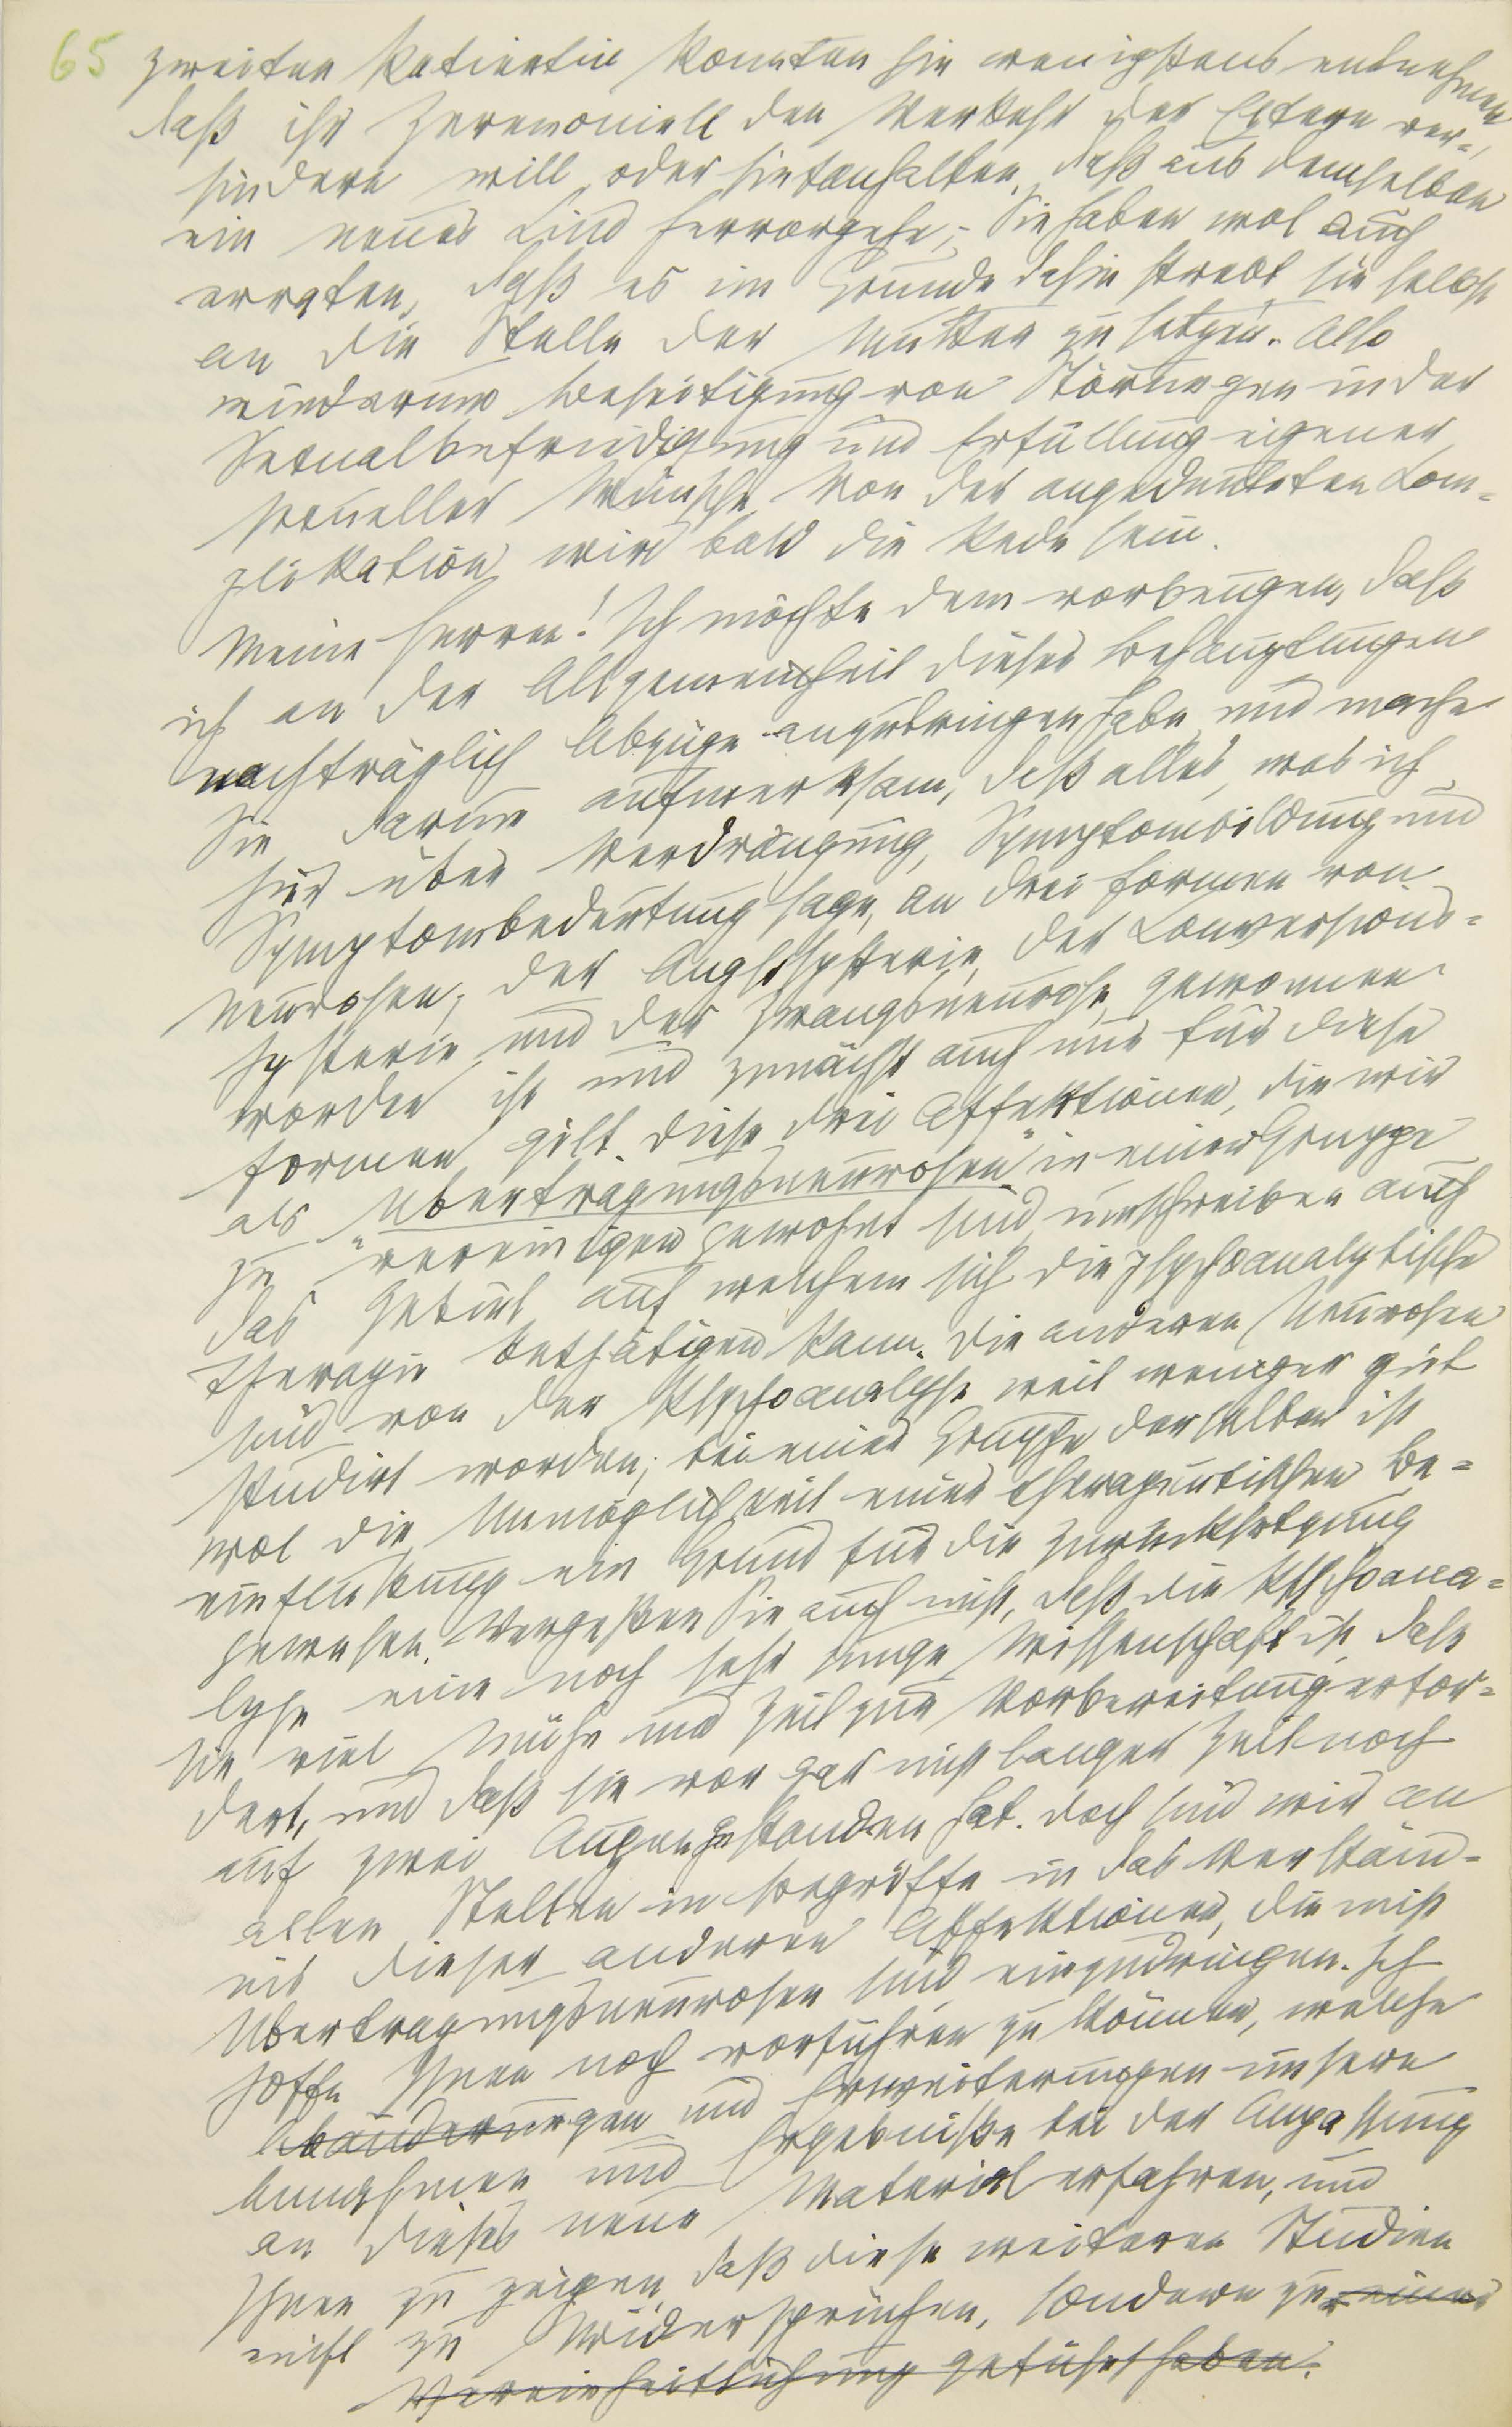 65
zweiten Patientin konnten Sie wenigstens entnehmen
daß ihr Zeremoniell den Verkehr der Eltern ver-
hindern will oder hintanhalten, daß aus demselben
ein neues Kind hervorgehe; Sie haben wol auch
erraten, daß es im Grunde dahin strebt sie selbst
an die Stelle der Mutter zu setzen. Also
wiederum Beseitigung von Störungen in der
Sexualbefriedigung und Erfüllung eigener
sexueller Wünsche. Von der angedeuteten Kom-
plikation wird bald die Rede sein.
Meine Herren! Ich möchte dem vorbeugen, daß
ich an der Allgemeinheit dieser Behauptungen
nachträglich Abzüge anzubringen habe und mache
Sie darum aufmerksam, daß alles, was ich
hier über Verdrängung, Symptombildung und
Symptombedeutung sage, an drei Formen von
Neurosen, der Angsthysterie, der Konversions-
hysterie und der Zwangsneurose, gewonnen
worden ist und zunächst auch nur für diese
Formen gilt. Diese drei Affektionen, die wir
als „Übertragungsneurosen“ in einer Gruppe
zu vereinigen gewohnt sind, umschreiben auch
das Gebiet auf welchem sich die psychoanalytische
Therapie bethätigen kann. Die anderen Neurosen
sind von der Psychoanalyse weit weniger gut
studirt worden; bei einer Gruppe derselben ist
wol die Unmöglichkeit einer therapeutischen Be-
einflußung ein Grund für die Zurücksetzung
gewesen. Vergeßen Sie auch nicht, daß die Psychoana-
lyse eine noch sehr junge Wissenschaft ist, daß
sie viel Mühe und Zeit zur Vorbereitung erfor-
dert, und daß sie vor gar nicht langer Zeit noch
auf zwei Augen gestanden hat. Doch sind wir an
allen Stellen im Begriffe in das Verständ-
nis dieser anderen Affektionen, die nicht
Übertragungsneurosen sind, einzudringen. Ich
hoffe Ihnen noch vorführen zu können, welche
Abänderungen und Erweiterungen unsere
Annahmen und Ergebniße bei der Anpaßung
an dieses neue Material erfahren, und
Ihnen zu zeigen, daß diese weiteren Studien
nicht zu Widersprüchen, sondern zu einer
Vereinheitlichung geführt haben.